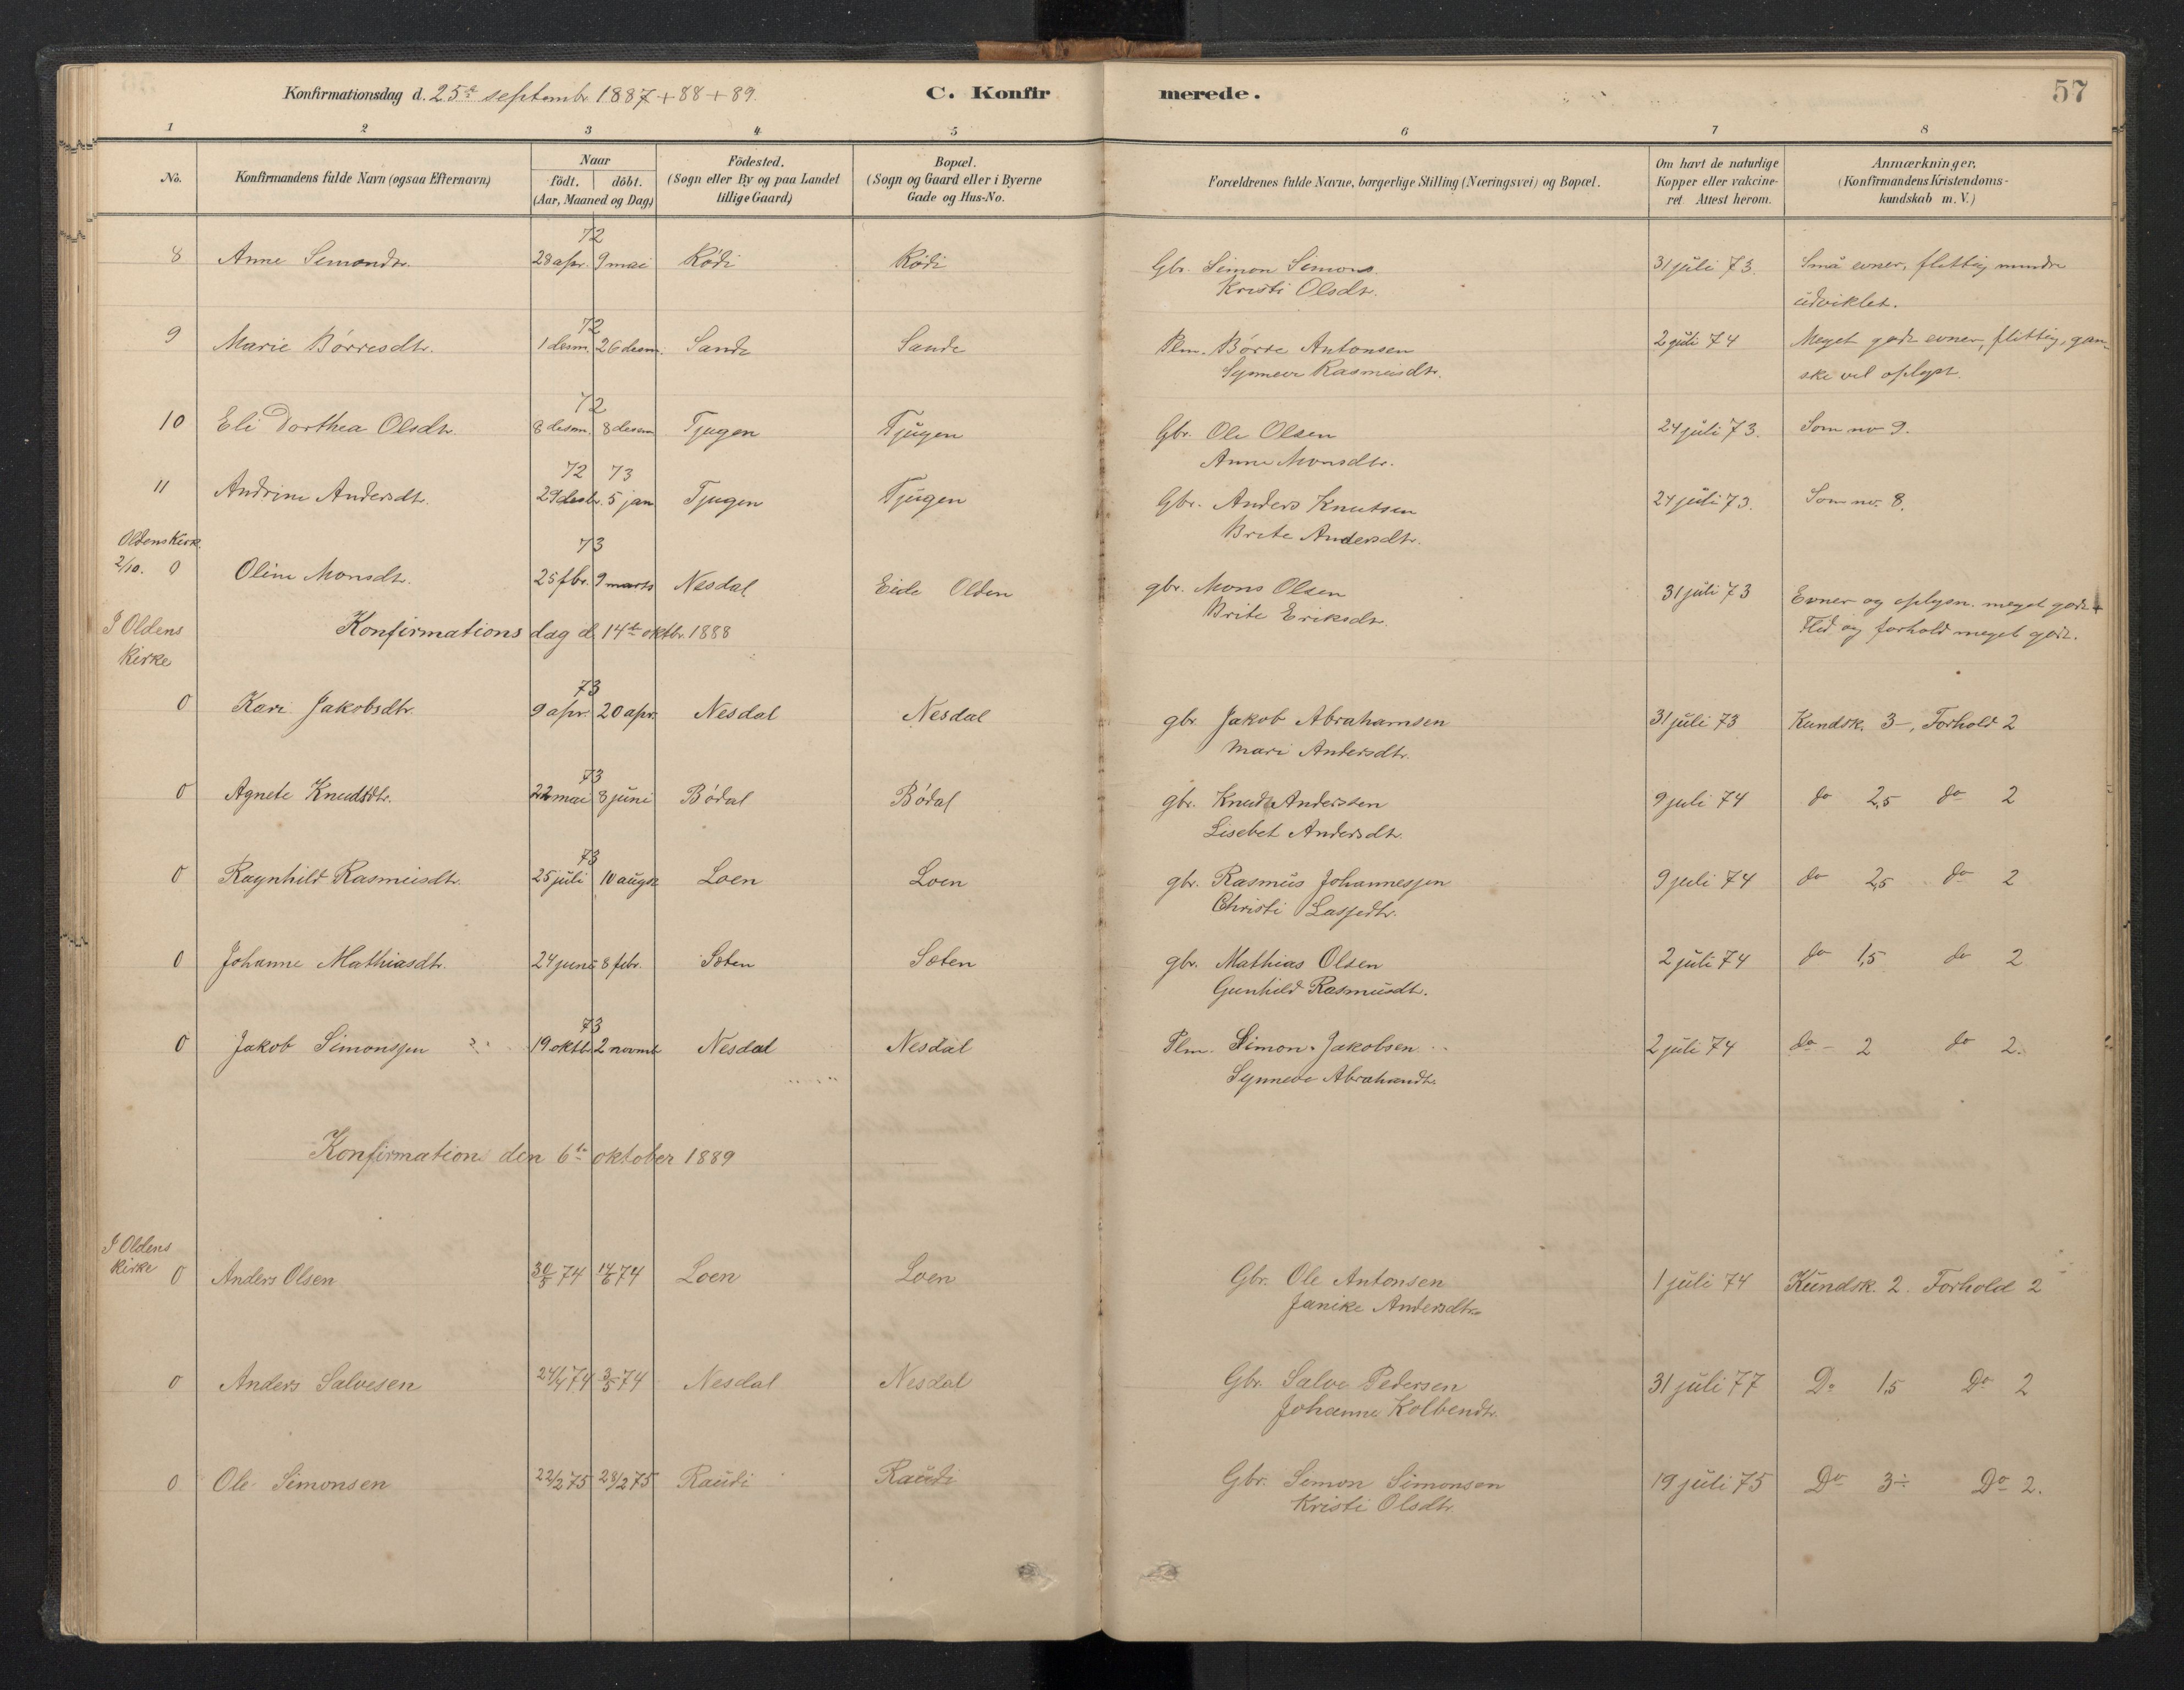 Konfirmationsdag d. 25de septembr 1887 + 88 + 89. C. Konfirmerede. 57
1 2 3 4 5 6 7 8
No. Konfirmandens fulde Navn (ogsaa Efternavn) Naar födt. döbt. (Aar, Maaned og Dag) Födested. (Sogn eller By og paa Landet tillige Gaard) Bopæl. (Sogn og Gaard eller i Byerne Gade og Hus-No. Forældrenes fulde Navne, borgerlige Stilling (Næringsvei) og Bopæl. Om havt de naturlige Kopper eller vakcineret Attest herom. Anmærkninger. (Konfirmandens Kristendomskundskab m. V.)
72
8 Anne Simonsdtr. 28 apr. 9 mai Rödi Rödi Gbr. Simon Simons. 31 juli 73. Små evner, flittig mindre
Kristi Olsdtr. udviklet.
72
9 Marie Börresdtr. 1 desm. 26 desm. Sande Sande Plm. Börre Antonsen 2 juli 74 Meget gode evner, flittig, gan-
Synneve Rasmusdtr. ske vel oplyst.
72
10 Eli Dorthea Olsdtr. 8 desm. 8 desem Tjugen Tjugen Gbr. Ole Olsen 24 juli 73. Som no 9.
Anne Monsdtr.
72 73
11 Andrine Andersdtr. 29 desbr. 5 jan Tjugen Tjugen Gbr. Anders Knutsen 24 juli 73. Som no. 8.
Brite Andersdtr.
Oldens Kirk. 73
2/10. 0 Oline Monsdtr. 25 fbr. 9 marts Nesdal Eide Olden gbr. Mons Olsen 31 juli 73 Evner og oplysn. meget gode +
Brite Eriksdtr. Flid og forhold meget godt.
I Oldens Kirke Konfirmationsdag d 14de oktbr. 1888
73
0 Kari Jakobsdtr. 9 apr. 20 apr. Nesdal Nesdal gbr. Jakob Abrahamsen 31 juli 73 Kundsk. 3-, Forhold 2
Mari Andersdtr.
73
0 Agnete Knudsdtr. 22 mai 8 juni Bödal Bödal gbr. Knud Anderssen 9 juli 74 do 2,5 do 2
Lisebet Andersdtr.
73
0 Ragnhild Rasmusdtr. 25 juli 10 augst Loen Loen gbr. Rasmus Johannessen 9 juli 74 do 2,5 do 2
Christi Lassedtr.
0 Johanne Mathiasdtr. 24 juni 8 febr. Sæten Sæten gbr. Mathias Olsen 2 juli 74 do 1,5 do 2
Gunhild Rasmusdtr.
73
0 Jakob Simonssen 19 oktbr 2 novmb Nesdal Nesdal Plm. Simon Jakobsen 2 juli 74 do - 2 do 2.
Synneve Abrahamdtr.
Konfirmation den 6te oktober 1889
I Oldens
Kirke 0 Anders Olsen 30/5 74 14/6 74 Loen Loen Gbr. Ole Antonsen 1 juli 74 Kundsk. 2. Forhold 2
Janike Andersdtr.
0 Anders Salvesen 24/4 74 3/5 74 Nesdal Nesdal Gbr. Salve Pedersen 31 juli 77 Do 1,5 Do 2
Johanne Kolbendtr.
0 Ole Simonsen 22/2 75 28/2 75 Raudi Raudi Gbr. Simon Simonsen 19 juli 75 Do 3÷ Do 2.
Kristi Olsdtr.